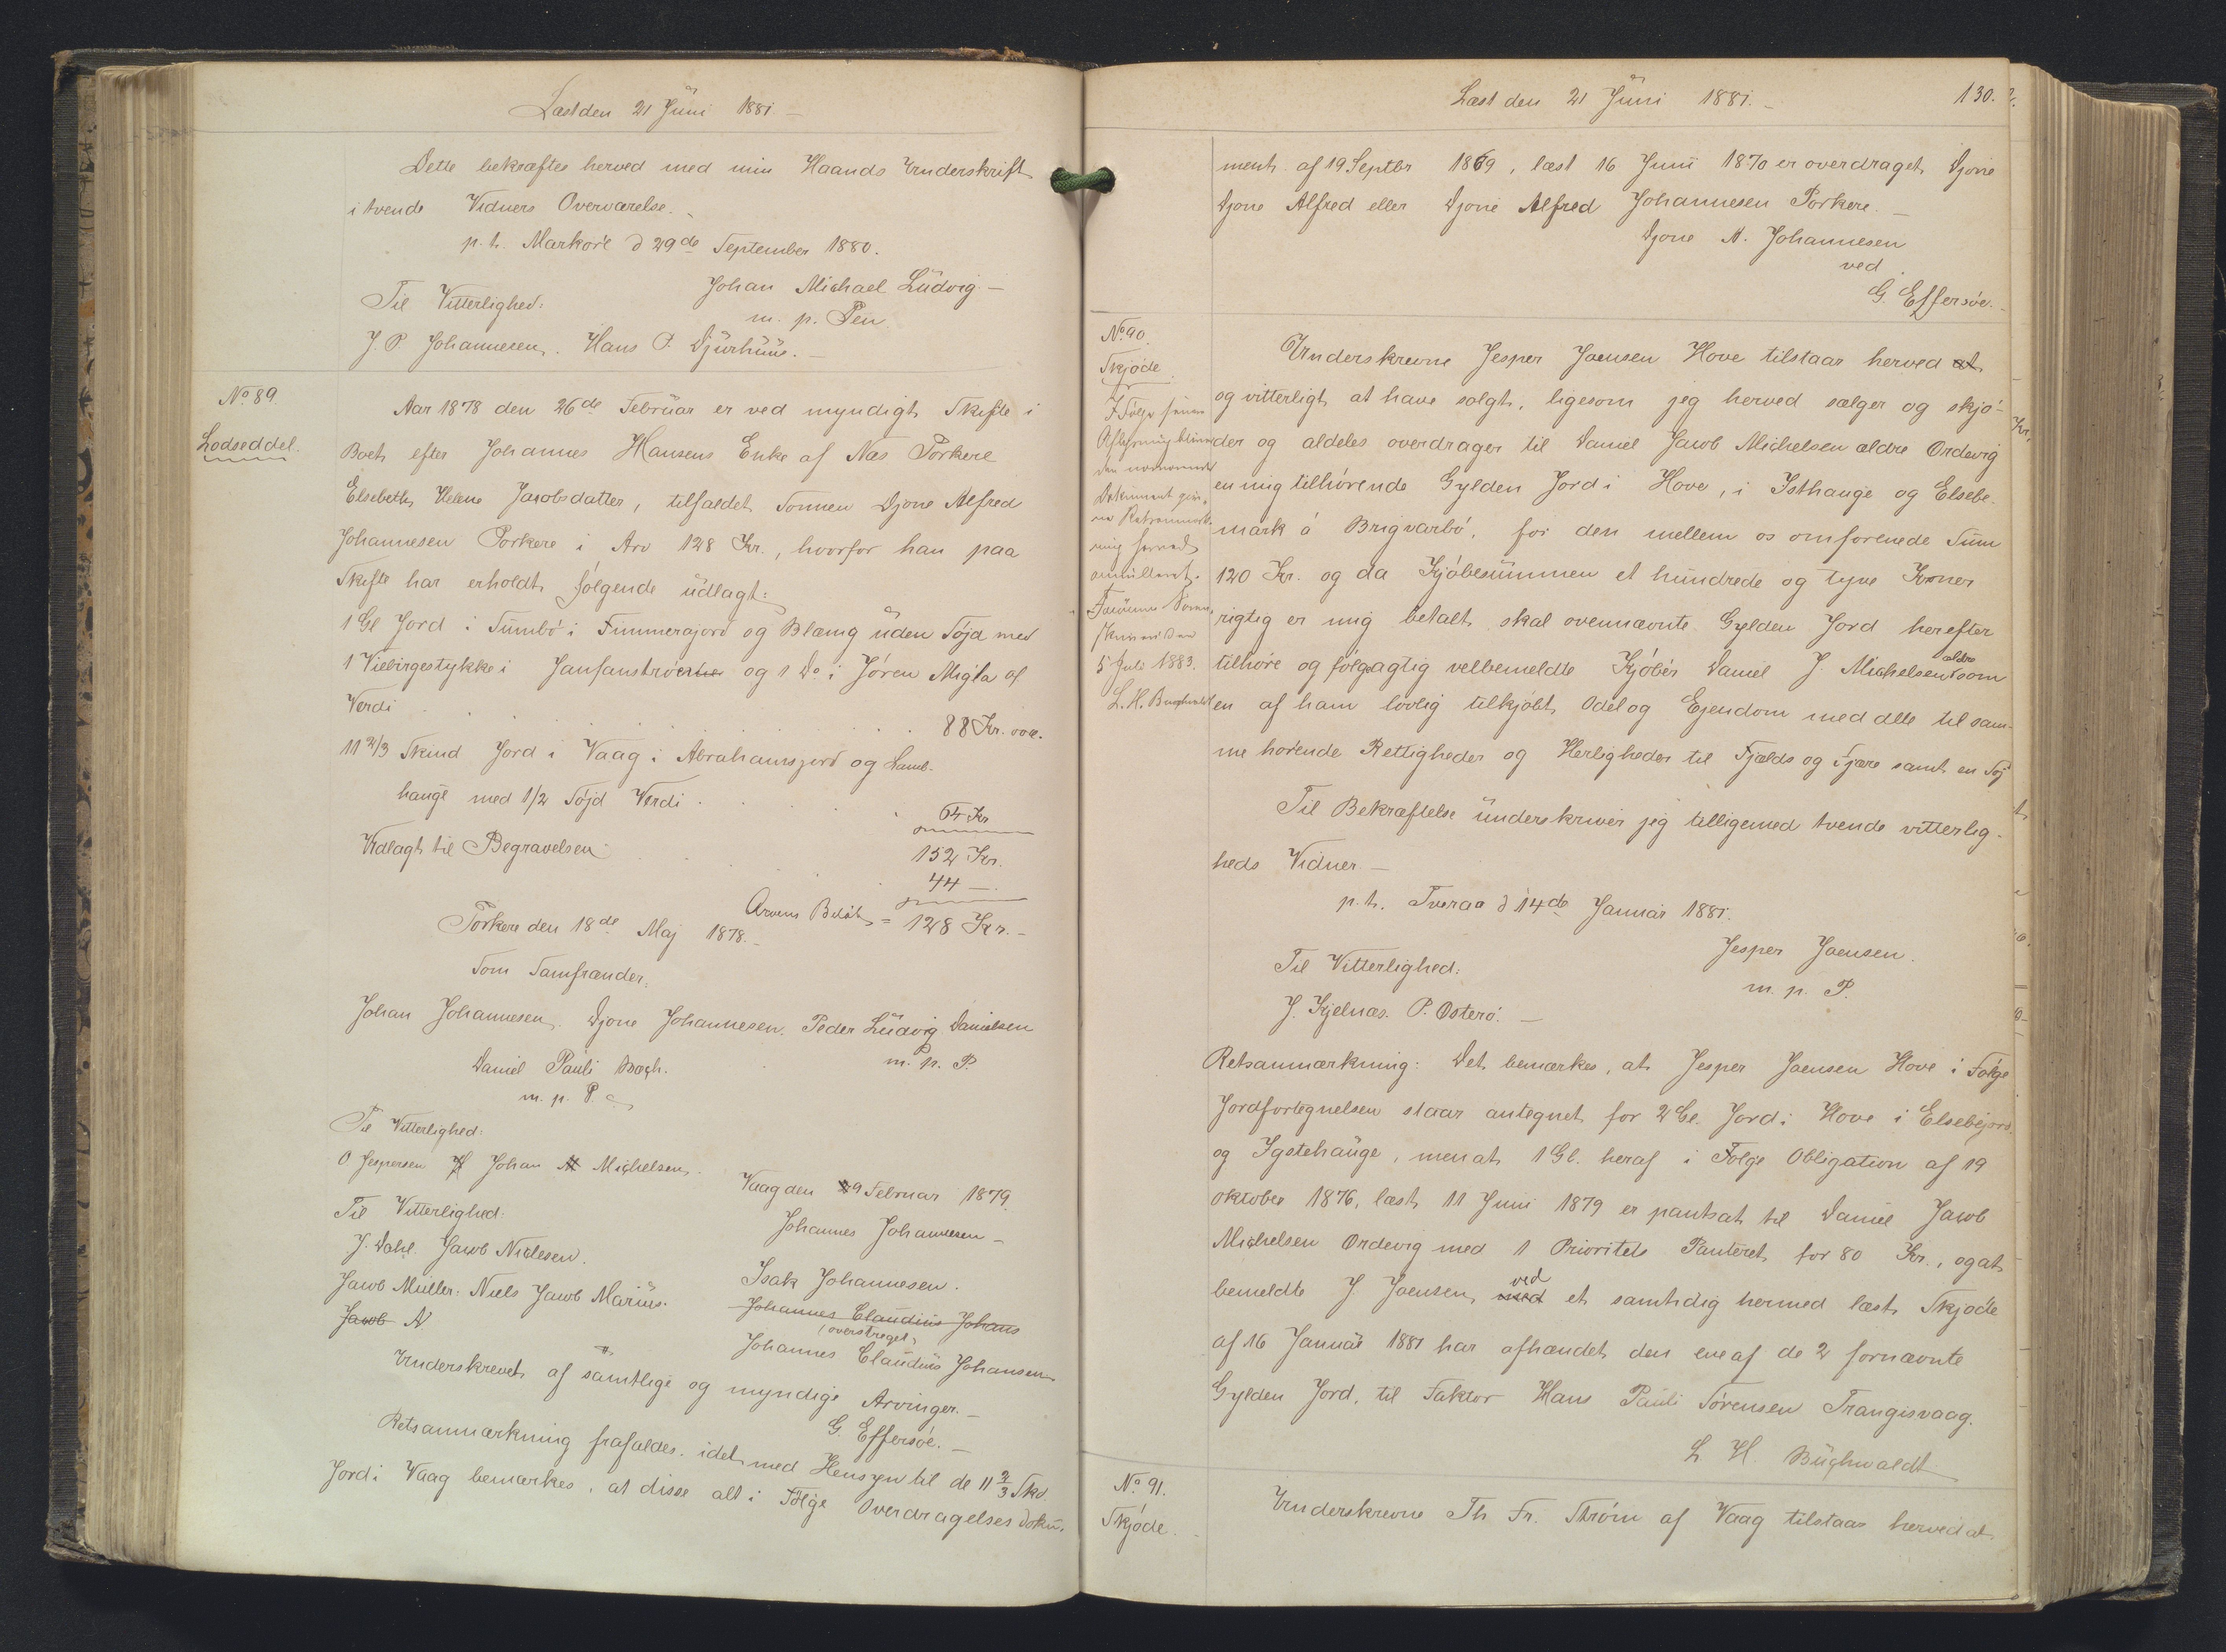 Læst den 21 Juni 1881.
Dette bekræftes herved med min Haands Underskrift
i tvende Vidners Overværelse.
p. t. Markøre d 29de September 1880.
Johan Michael Ludvig
m. p. Pen
Til Vitterlighed:
J. P. Johannesen. Hans P. Djurhuus.
No 89.
Lodseddel.
Aar 1878 den 26de Februar er ved myndigt Skifte i
Boet efter Johannes Hansens Enke af Næs Porkere
Elsebeth Helene Jacobsdatter, tilfaldet Sønnen Djone Alfred
Johannesen Porkere i Arv 128 Kr., hvorfor han paa
Skifte har erholdt følgende udlagt:
1 Gl Jord i Sumbø i Fimmerajord og Blæing uden Søjd med
1 Vielbirgestykke i og 1 Do i Jøren Migla af
Verdi . . . 88 Kr. 00 ø.
11 2/3 Skind Jord i Vaag i Abrahamsjord og Lamb-
hauge med 1/2 Søjd Verdi . . . 64 Kr
152 Kr.
Udlagt til Begravelsen . . . 44 —.
Arvens Beløb = 128 Kr. —
Porkere den 18de Maj 1878. —
Som Samfrænder.
Johan Johannesen. Djone Johannesen. Peder Ludvig Danielsen
m. p. P.
Daniel Pauli Bech.
m. p. P.
Til Vitterlighed:
O Jespersen Johan M Michelsen.
Vaag den 9 Februar 1879.
Til Vitterlighed.
Johannes Johannesen —
J. Dahl. Jacob Nielesen.
Isak Johannesen.
Jacob Müller. Niels Jacob Marius.
Johannes Claudius Johans
(overstreget)
Jacob N
Johannes Claudius Johansen
Underskrevet af samtlige og myndige Arvinger. —
G. Effersøe. —
Retsanmærkning frafaldes. idet med Hensyn til de 11 2/3 Skd.
Jord i Vaag bemærkes, at disse alt i Følge Overdragelses Doku-
Læst den 21 Juni 1881. —
130.
ment af 19 Septbr 1869, læst 16 Juni 1870 er overdraget Djone
Djone Alfred eller Djone Alfred Johannesen Porkere. —
Djone A. Johannesen
ved
G. Effersøe. —
No 90.
Skjøde.
I Følge senere
Aflysning bliver
den nærværende
Dokument
Retsanmærk-
ning herved
annulleret.
Færøernes Soren-
skriveri den
5 Juli 1883.
L. H. Buchwaldt
Underskrevne Jesper Joensen Hove tilstaar herved at
og vitterligt at have solgt, ligesom jeg herved sælger og skjø-
der og aldeles overdrager til Daniel Jacob Michelsen ældre Ordevig
en mig tilhørende Gylden Jord i Hove, i Isthauge og Elsebe-
mark á Brigvarbø, for den mellem os omforenede Sum
120 Kr. og da Kjøbesummen et hundrede og tyve Kroner
rigtig er mig betalt, skal ovennævnte Gylden Jord herefter
tilhøre og følgagtig velbemeldte Kjøber Daniel J. Michelsen ældre som
en af ham lovlig tilkjøbt Odel og Ejendom med alle til sam-
me hørende Rettigheder og Herligheder til Fjælds og Fjære samt en Søj
Til Bekræftelse underskriver jeg tilligemed tvende vitterlig-
heds Vidner. —
p. t. Tveraa d 14de Januar 1881.
Jesper Joensen.
m. p. P.
Til Vitterlighed:
J. Kjelnæs. P. Osterø. —
Retsanmærkning: Det bemærkes, at Jesper Joensen Hove i Følge
Jordfortegnelsen staar antegnet for 2 Gl. Jord i Hove i Elsebejord
og Igstehauge, men at 1 Gl. heraf i Følge Obligation af 19
Oktober 1876, læst 11 Juni 1879 er pantsat til Daniel Jacob
Michelsen Ordevig med 1 Prioritets Panteret for 80 Kr., og at
bemeldte J Joensen med ved et samtidig hermed læst Skjøde
af 16 Januar 1881 har afhændet den ene af de 2 fornævnte
Gylden Jord, til Faktor Hans Pauli Sørensen Trangisvaag.
L H. Buchwaldt
No 91.
Skjøde.
Underskrevne Th Fr. Strøm af Vaag tilstaar herved at